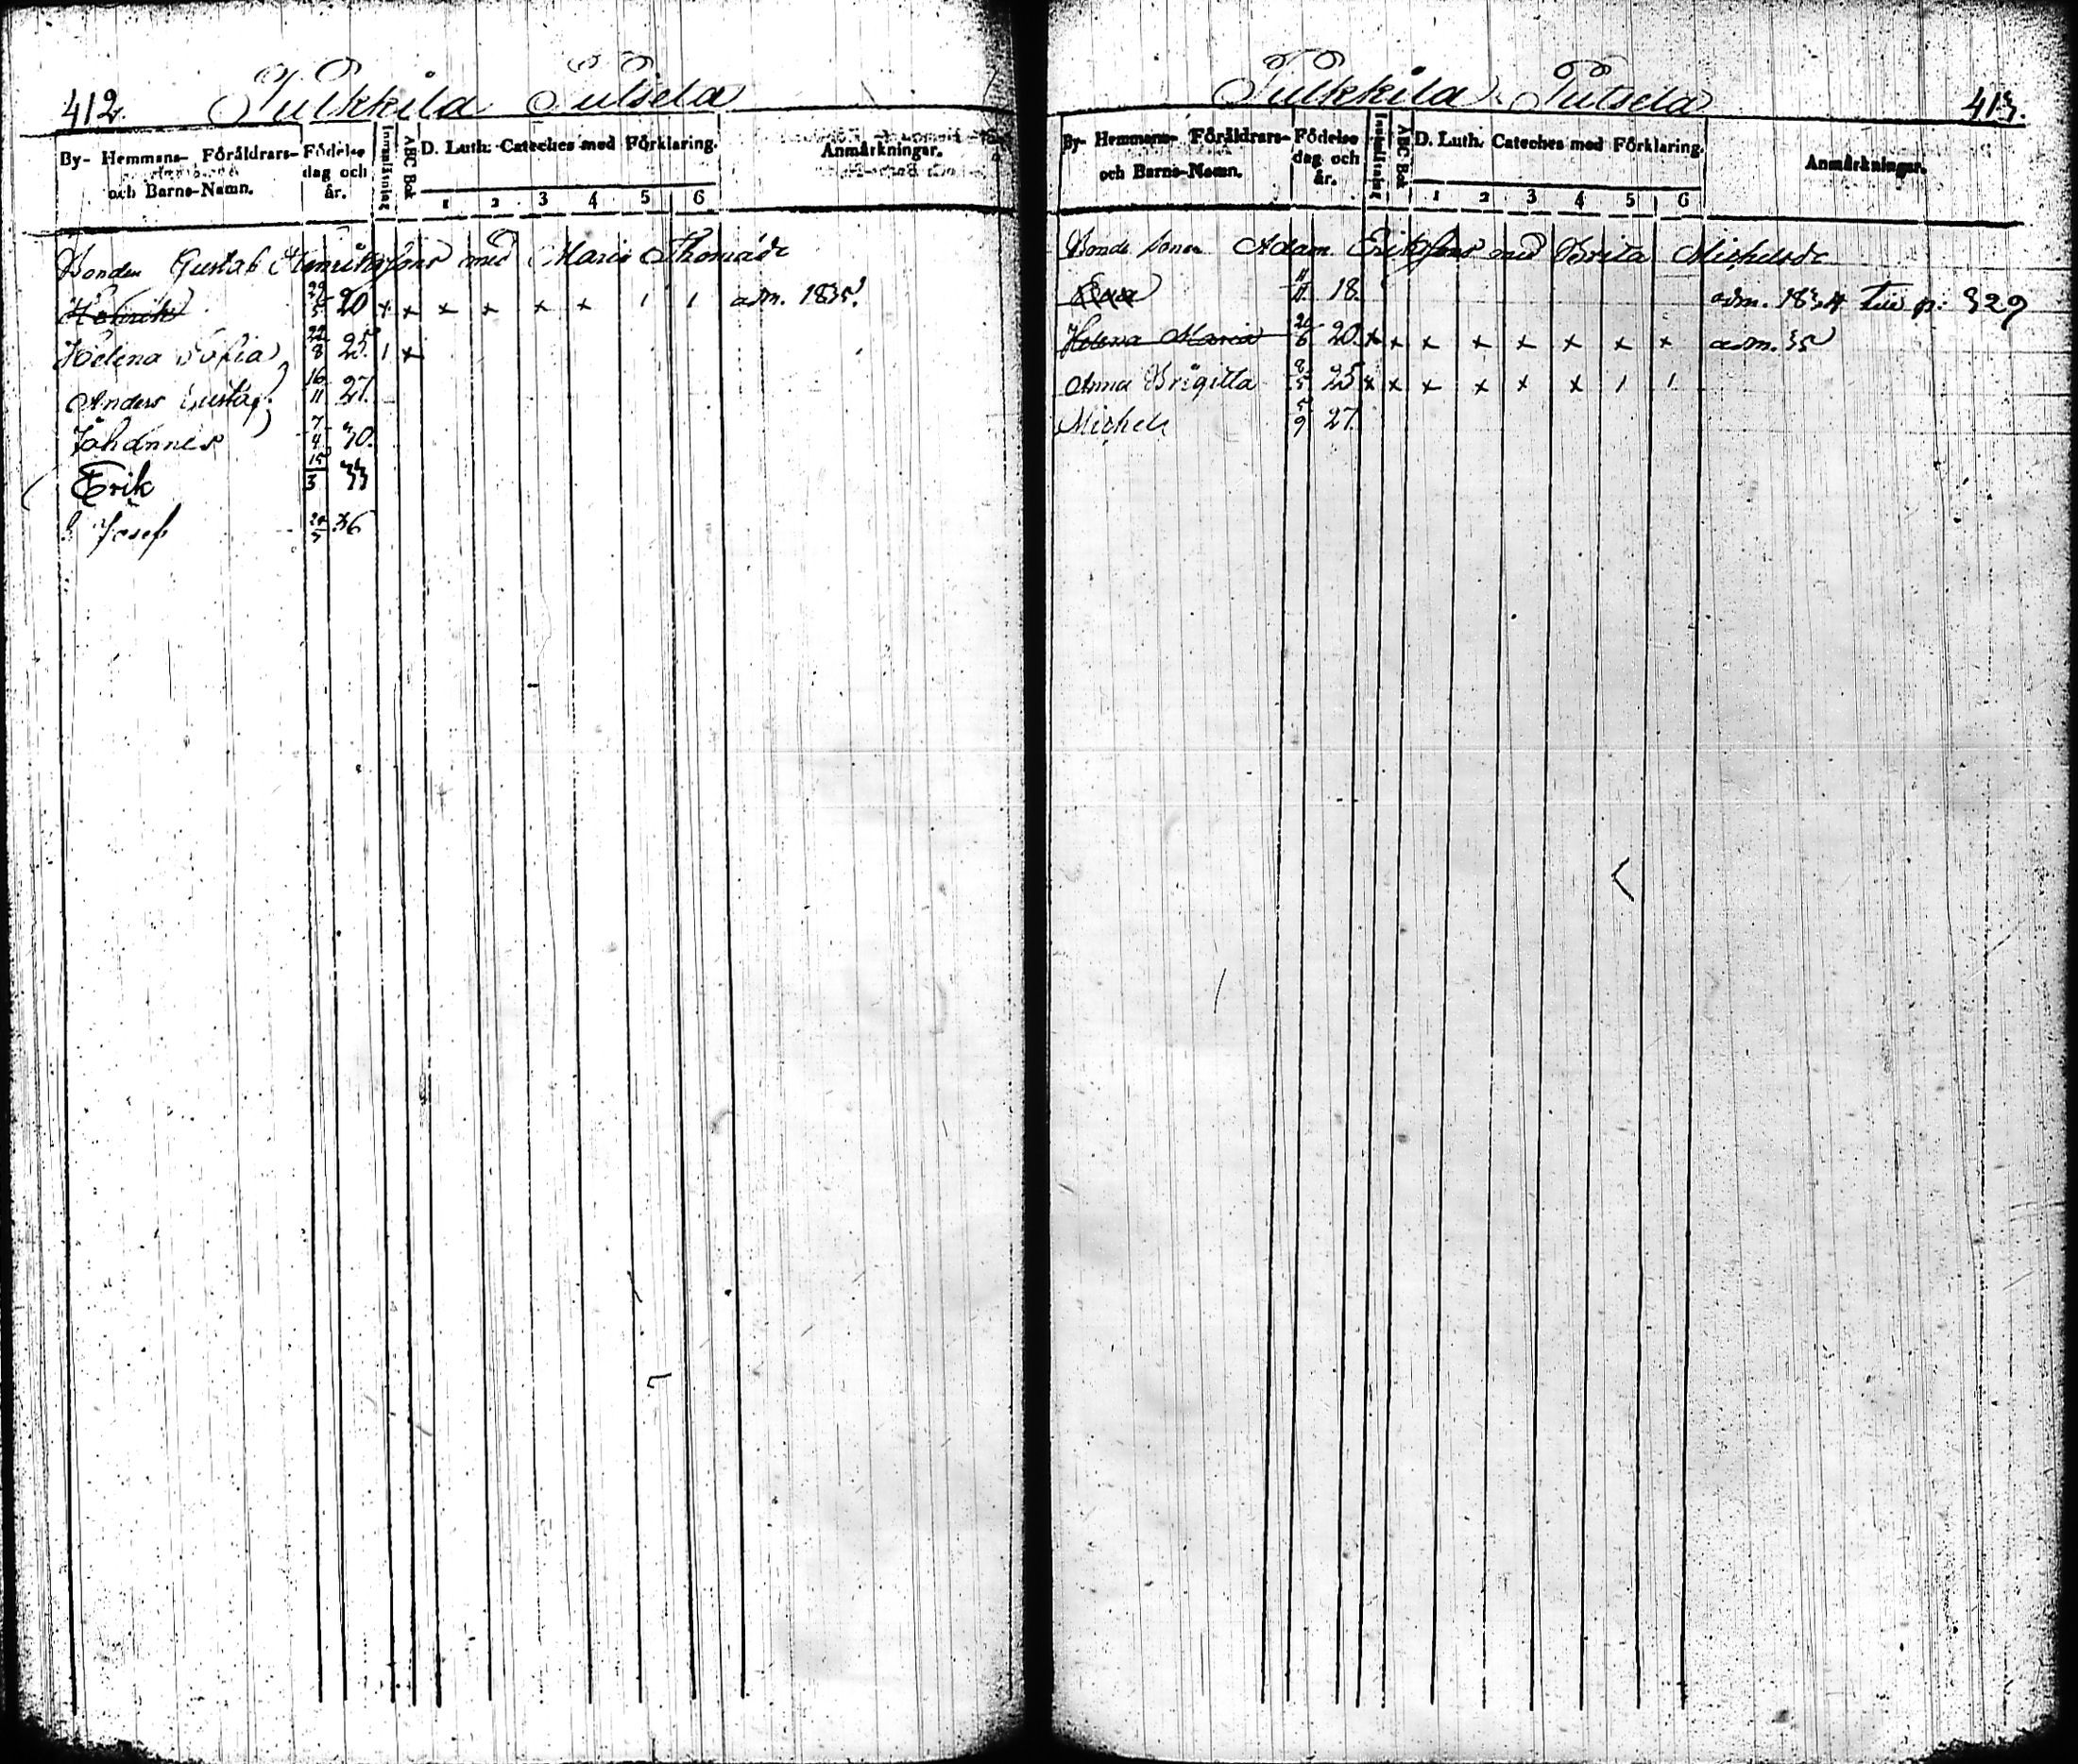 412. Tulkkila Sutsela
By- Hemmans- Föräldrars- och Barns-Namn. Födelse dag och år. Innanläsning ABC Bok D. Luth. Cateches med Förklaring. 1 2 3 4 5 6 Anmärkningar.
Bonden Gustaf Henriksons med Maria Thomasdr
Henrik 5 20 x x x x x x 1 1 adm. 1835.
Helena Sofia 22/8 25. 1 x
Anders Gustaf 16/11 27.
Johannes 7/4 30.
Erik 15/3 33
Josef 24/5 36
Tulkkila Sutsela 413.
By- Hemmans- Föräldrars- och Barns-Namn. Födelse dag och år. Innanläsning ABC Bok D. Luth. Cateches med Förklaring. 1 2 3 4 5 6 Anmärkningar.
Bonde sonen Adam Eriksons med Brita Michelsdr
18. adm. 1834 p: 329
Helena Maria 20/6 20. x x x x x x x x adm. 35
Anna Brigitta 5 25 x x x x x x 1 1
Michel 5/9 27.